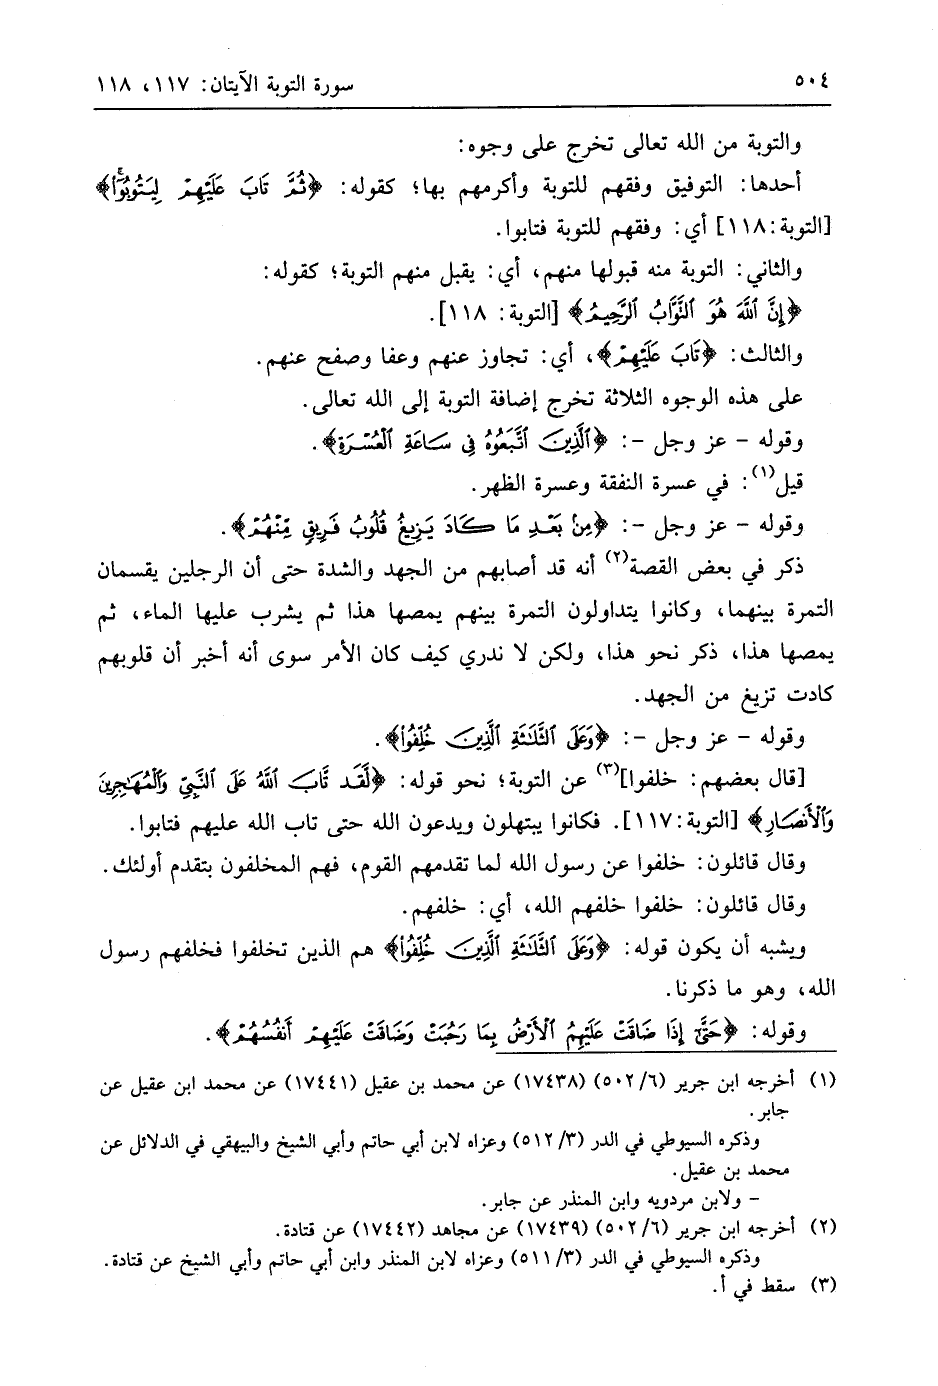 ٥٠٤
سورة التوبة الآيتان: ١١٧، ١١٨
والتوبة من الله تعالى تخرج على وجوه:
أحدها: التوفيق وفقهم للتوبة وأكرمهم بها؛ كقوله: ﴿ثُمَّ تَابَ عَلَيْهِمْ لِيَتُوبُوٓاْ﴾
[التوبة:١١٨] أي: وفقهم للتوبة فتابوا.
والثاني: التوبة منه قبولها منهم، أي: يقبل منهم التوبة؛ كقوله:
﴿إِنَّ ٱللَّهَ هُوَ ٱلتَّوَّابُ ٱلرَّحِيمُ﴾ [التوبة: ١١٨].
والثالث: ﴿تَابَ عَلَيْهِمْ﴾، أي: تجاوز عنهم وعفا وصفح عنهم.
على هذه الوجوه الثلاثة تخرج إضافة التوبة إلى الله تعالى.
وقوله - عز وجل -: ﴿ٱلَّذِينَ ٱتَّبَعُوهُ فِى سَاعَةِ ٱلْعُسْرَةِ﴾.
قيل(١): في عسرة النفقة وعسرة الظهر.
وقوله - عز وجل -: ﴿مِنۢ بَعْدِ مَا كَادَ يَزِيغُ قُلُوبُ فَرِيقٍ مِّنْهُمْ﴾.
ذكر في بعض القصة(٢) أنه قد أصابهم من الجهد والشدة حتى أن الرجلين يقسمان
التمرة بينهما، وكانوا يتداولون التمرة بينهم يمصها هذا ثم يشرب عليها الماء، ثم
يمصها هذا، ذكر نحو هذا، ولكن لا ندري كيف كان الأمر سوى أنه أخبر أن قلوبهم
كادت تزيغ من الجهد.
وقوله - عز وجل -: ﴿وَعَلَى ٱلثَّلَٰثَةِ ٱلَّذِينَ خُلِّفُواْ﴾.
[قال بعضهم: خلفوا](٣) عن التوبة؛ نحو قوله: ﴿لَقَد تَّابَ ٱللَّهُ عَلَى ٱلنَّبِىِّ وَٱلْمُهَٰجِرِينَ
وَٱلْأَنصَارِ﴾ [التوبة:١١٧]. فكانوا يبتهلون ويدعون الله حتى تاب الله عليهم فتابوا.
وقال قائلون: خلفوا عن رسول الله لما تقدمهم القوم، فهم المخلفون بتقدم أولئك.
وقال قائلون: خلفوا خلفهم الله، أي: خلفهم.
ويشبه أن يكون قوله: ﴿وَعَلَى ٱلثَّلَٰثَةِ ٱلَّذِينَ خُلِّفُواْ﴾ هم الذين تخلفوا فخلفهم رسول
الله، وهو ما ذكرنا.
وقوله: ﴿حَتَّىٰٓ إِذَا ضَاقَتْ عَلَيْهِمُ ٱلْأَرْضُ بِمَا رَحُبَتْ وَضَاقَتْ عَلَيْهِمْ أَنفُسُهُمْ﴾.
(١) أخرجه ابن جرير (٥٠٢/٦) (١٧٤٣٨) عن محمد بن عقيل (١٧٤٤١) عن محمد ابن عقيل عن
جابر.
وذكره السيوطي في الدر (٥١٢/٣) وعزاه لابن أبي حاتم وأبي الشيخ والبيهقي في الدلائل عن
محمد بن عقيل.
- ولابن مردويه وابن المنذر عن جابر.
(٢) أخرجه ابن جرير (٥٠٢/٦) (١٧٤٣٩) عن مجاهد (١٧٤٤٢) عن قتادة.
وذكره السيوطي في الدر (٥١١/٣) وعزاه لابن المنذر وابن أبي حاتم وأبي الشيخ عن قتادة.
(٣) سقط في أ.